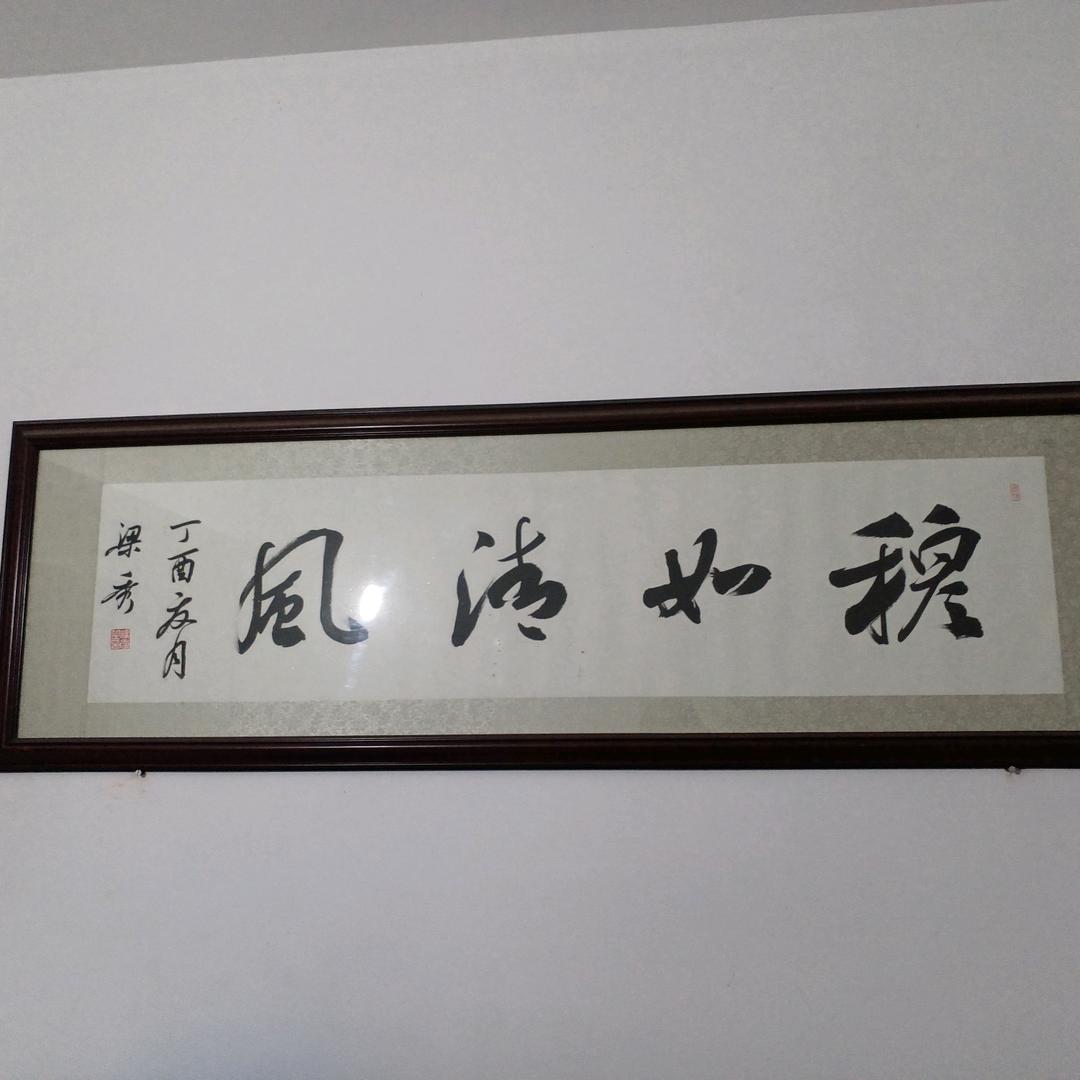 穆如清风
丁酉夏月
梁秀